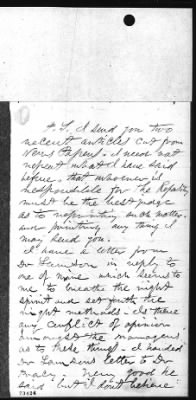 P.S. I send you two
recent articles cut from
News Papers. I need not
repeat what I have said
before, that whoever is
responsible for the
must be the best judge
as to reprinting such matter,
and printing any thing I
may send you.
I have a letter from
Dr in reply to
one of mine which seems to
me to breathe the right
spirit and set forth the
right methods. Is there
any conflict of opinion
amongst the managers
as to these things. I handed
Dr letter to Dr
Very good he
said but I don't believe